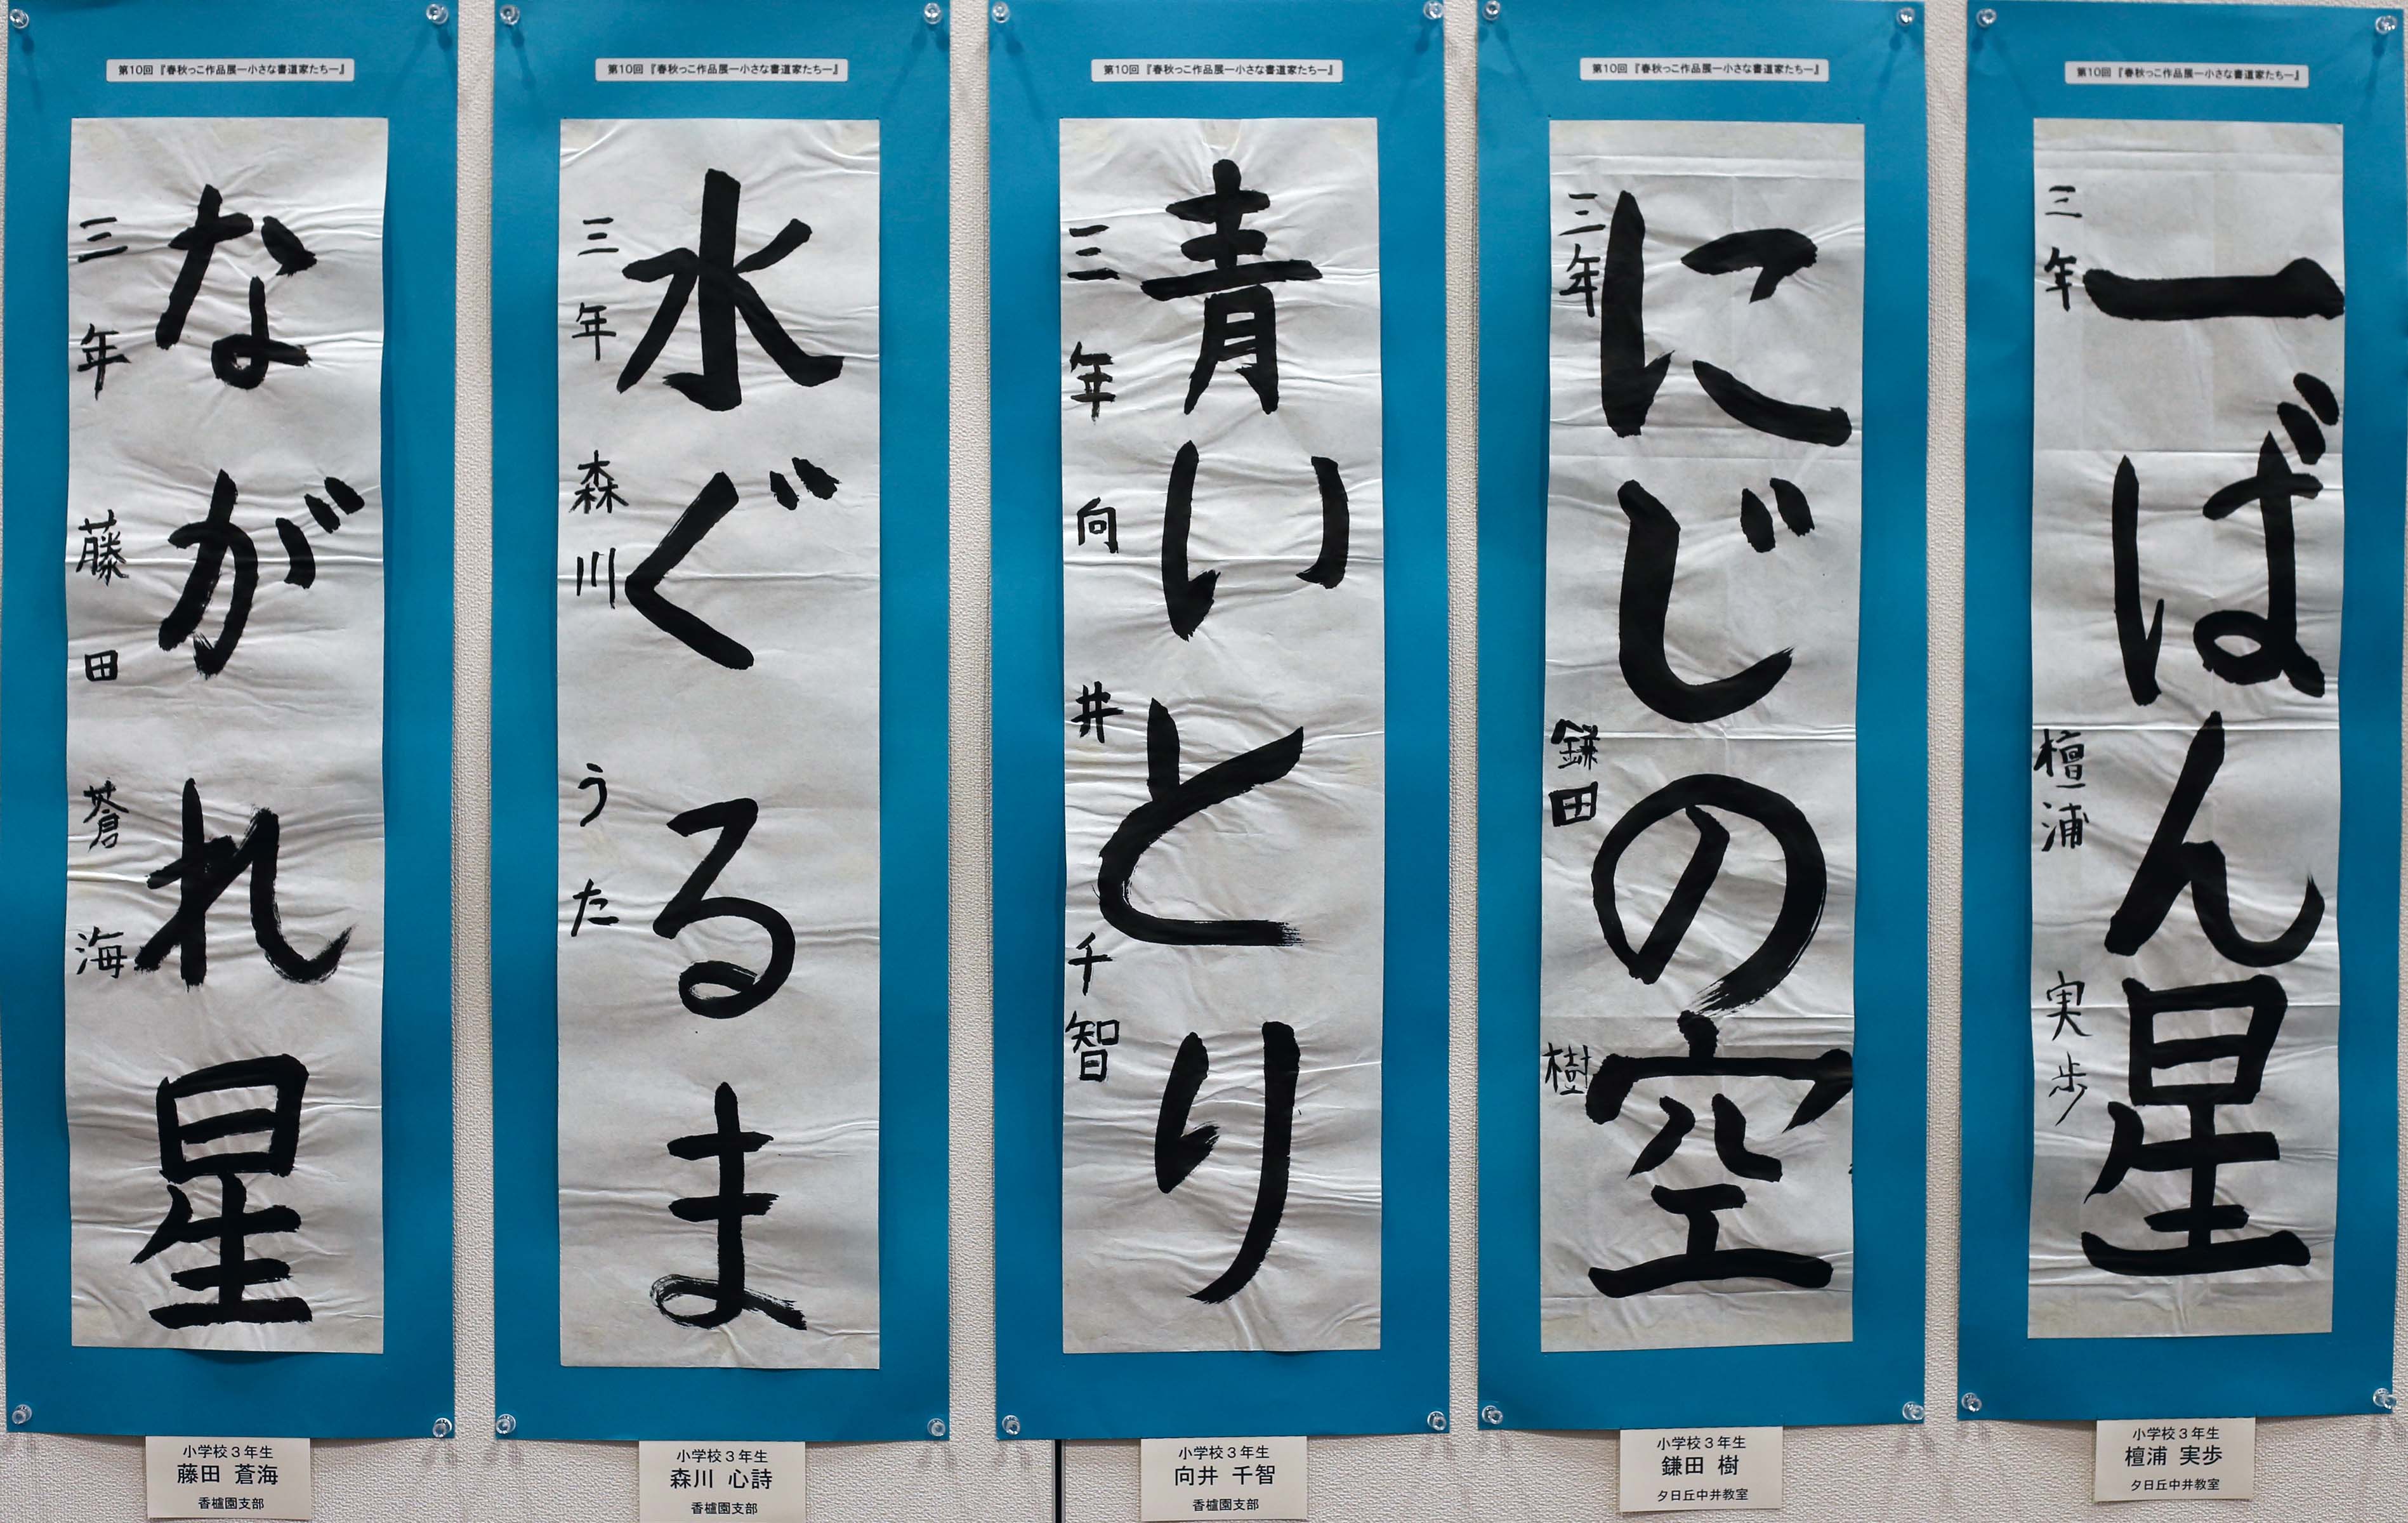 第10回『春秋っこ作品展ー小さな書道家たちー』
ながれ星
三年 藤田 蒼海
小学校3年生
藤田 蒼海
香櫨園支部
第10回『春秋っこ作品展ー小さな書道家たちー』
水ぐるま
三年 森川 うた
小学校3年生
森川 心詩
香櫨園支部
第10回『春秋っこ作品展ー小さな書道家たちー』
青いとり
三年 向井 千智
小学校3年生
向井 千智
香櫨園支部
第10回『春秋っこ作品展ー小さな書道家たちー』
にじの空
三年 鎌田 樹
小学校3年生
鎌田 樹
夕日丘中井教室
第10回『春秋っこ作品展ー小さな書道家たちー』
一ばん星
三年 檀浦 実歩
小学校3年生
檀浦 実歩
夕日丘中井教室